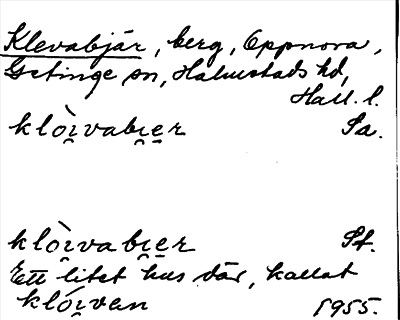 Klevabjär, berg, Oppnora,
Getinge sn, Halmstads hd,
Hall. l.
klòi̯vabi̯er Sa.
klòi̯vabi̯er St.
Ett litet hus där, kallat
klói̯ven 1955.